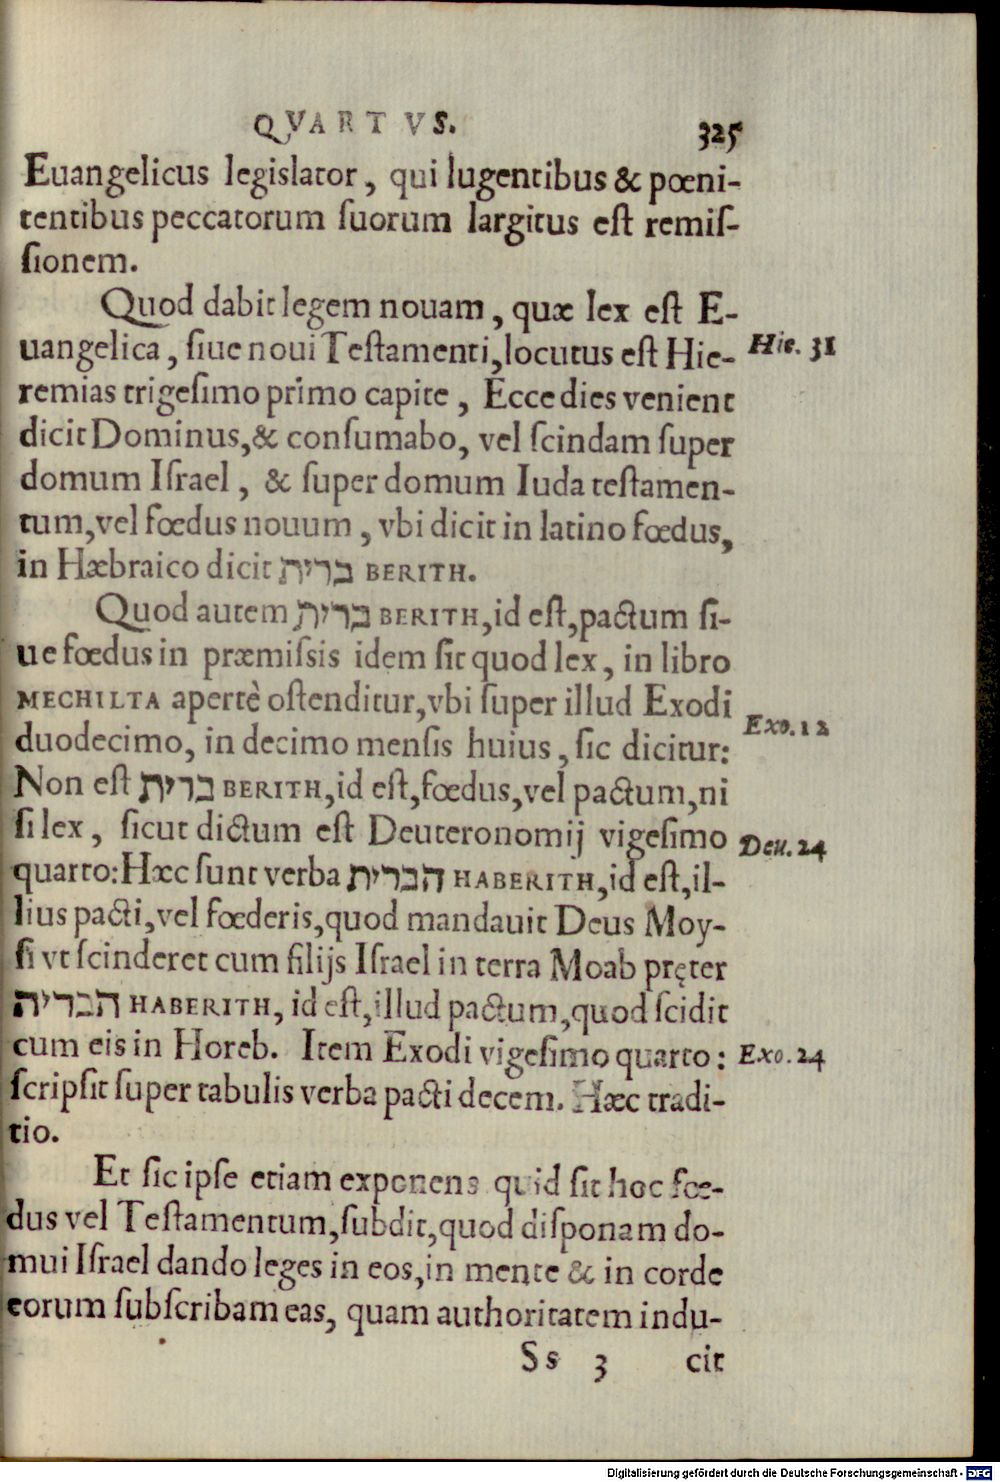 QVARTVS. 325
Euangelicus legislator, qui lugentibus & pœni-
tentibus peccatorum ſuorum largitus eſt remiſ-
ſionem.
Quod dabit legem nouam, quæ lex eſt E-
uangelica, ſiue noui Teſtamenti, locutus eſt Hie- Hie. 31
remias trigeſimo primo capite, Ecce dies venient
dicit Dominus, & conſumabo, vel ſcindam ſuper
domum Iſrael, & ſuper domum Iuda teſtamen-
tum, vel fœdus nouum, vbi dicit in latino fœdus,
in Hæbraico dicit ברית BERITH.
Quod autem ברית BERITH, id eſt, pactum ſi-
ue fœdus in præmiſsis idem ſit quod lex, in libro
MECHILTA apertè oſtenditur, vbi ſuper illud Exodi
duodecimo, in decimo menſis huius, ſic dicitur: Exo. 12
Non eſt ברית BERITH, id eſt, fœdus, vel pactum, ni
ſi lex, ſicut dictum eſt Deuteronomij vigeſimo Deu. 24
quarto: Hæc ſunt verba הברית HABERITH, id eſt, il-
lius pacti, vel fœderis, quod mandauit Deus Moy-
ſi vt ſcinderet cum filijs Iſrael in terra Moab pręter
הברית HABERITH, id eſt, illud pactum, quod ſcidit
cum eis in Horeb. Item Exodi vigeſimo quarto: Exo. 24
ſcripſit ſuper tabulis verba pacti decem. Hæc tradi-
tio.
Et ſic ipſe etiam exponens quid ſit hoc fœ-
dus vel Teſtamentum, ſubdit, quod diſponam do-
mui Iſrael dando leges in eos, in mente & in corde
eorum ſubſcribam eas, quam authoritatem indu-
Ss 3 cit
Digitalisierung gefördert durch die Deutsche Forschungsgemeinschaft - DFG